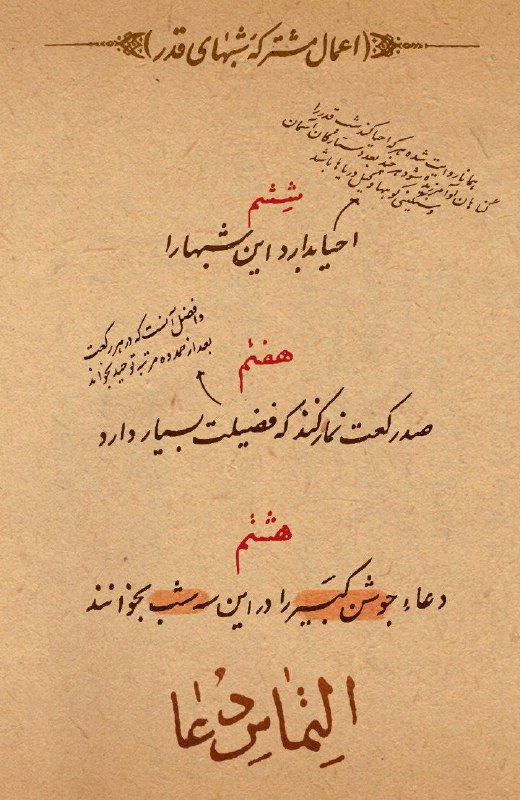 (اعمال مشترکهٔ شبهای قدر)
همانا روایت شده هر که احیا کند شب قدر را
گناهان او آمرزیده شود هر چند بعدد ستارگان آسمان
و سنگینی کوهها و کیل دریاها باشد
ششم
احیا بدارد این شبها را
و افضل آنست که در هر رکعت
بعد از حمد ده مرتبه توحید بخواند
هفتم
صد رکعت نماز کند که فضیلت بسیار دارد
هشتم
دعاء جوشن کبیر را در این سه شب بخوانند
التماس دعا